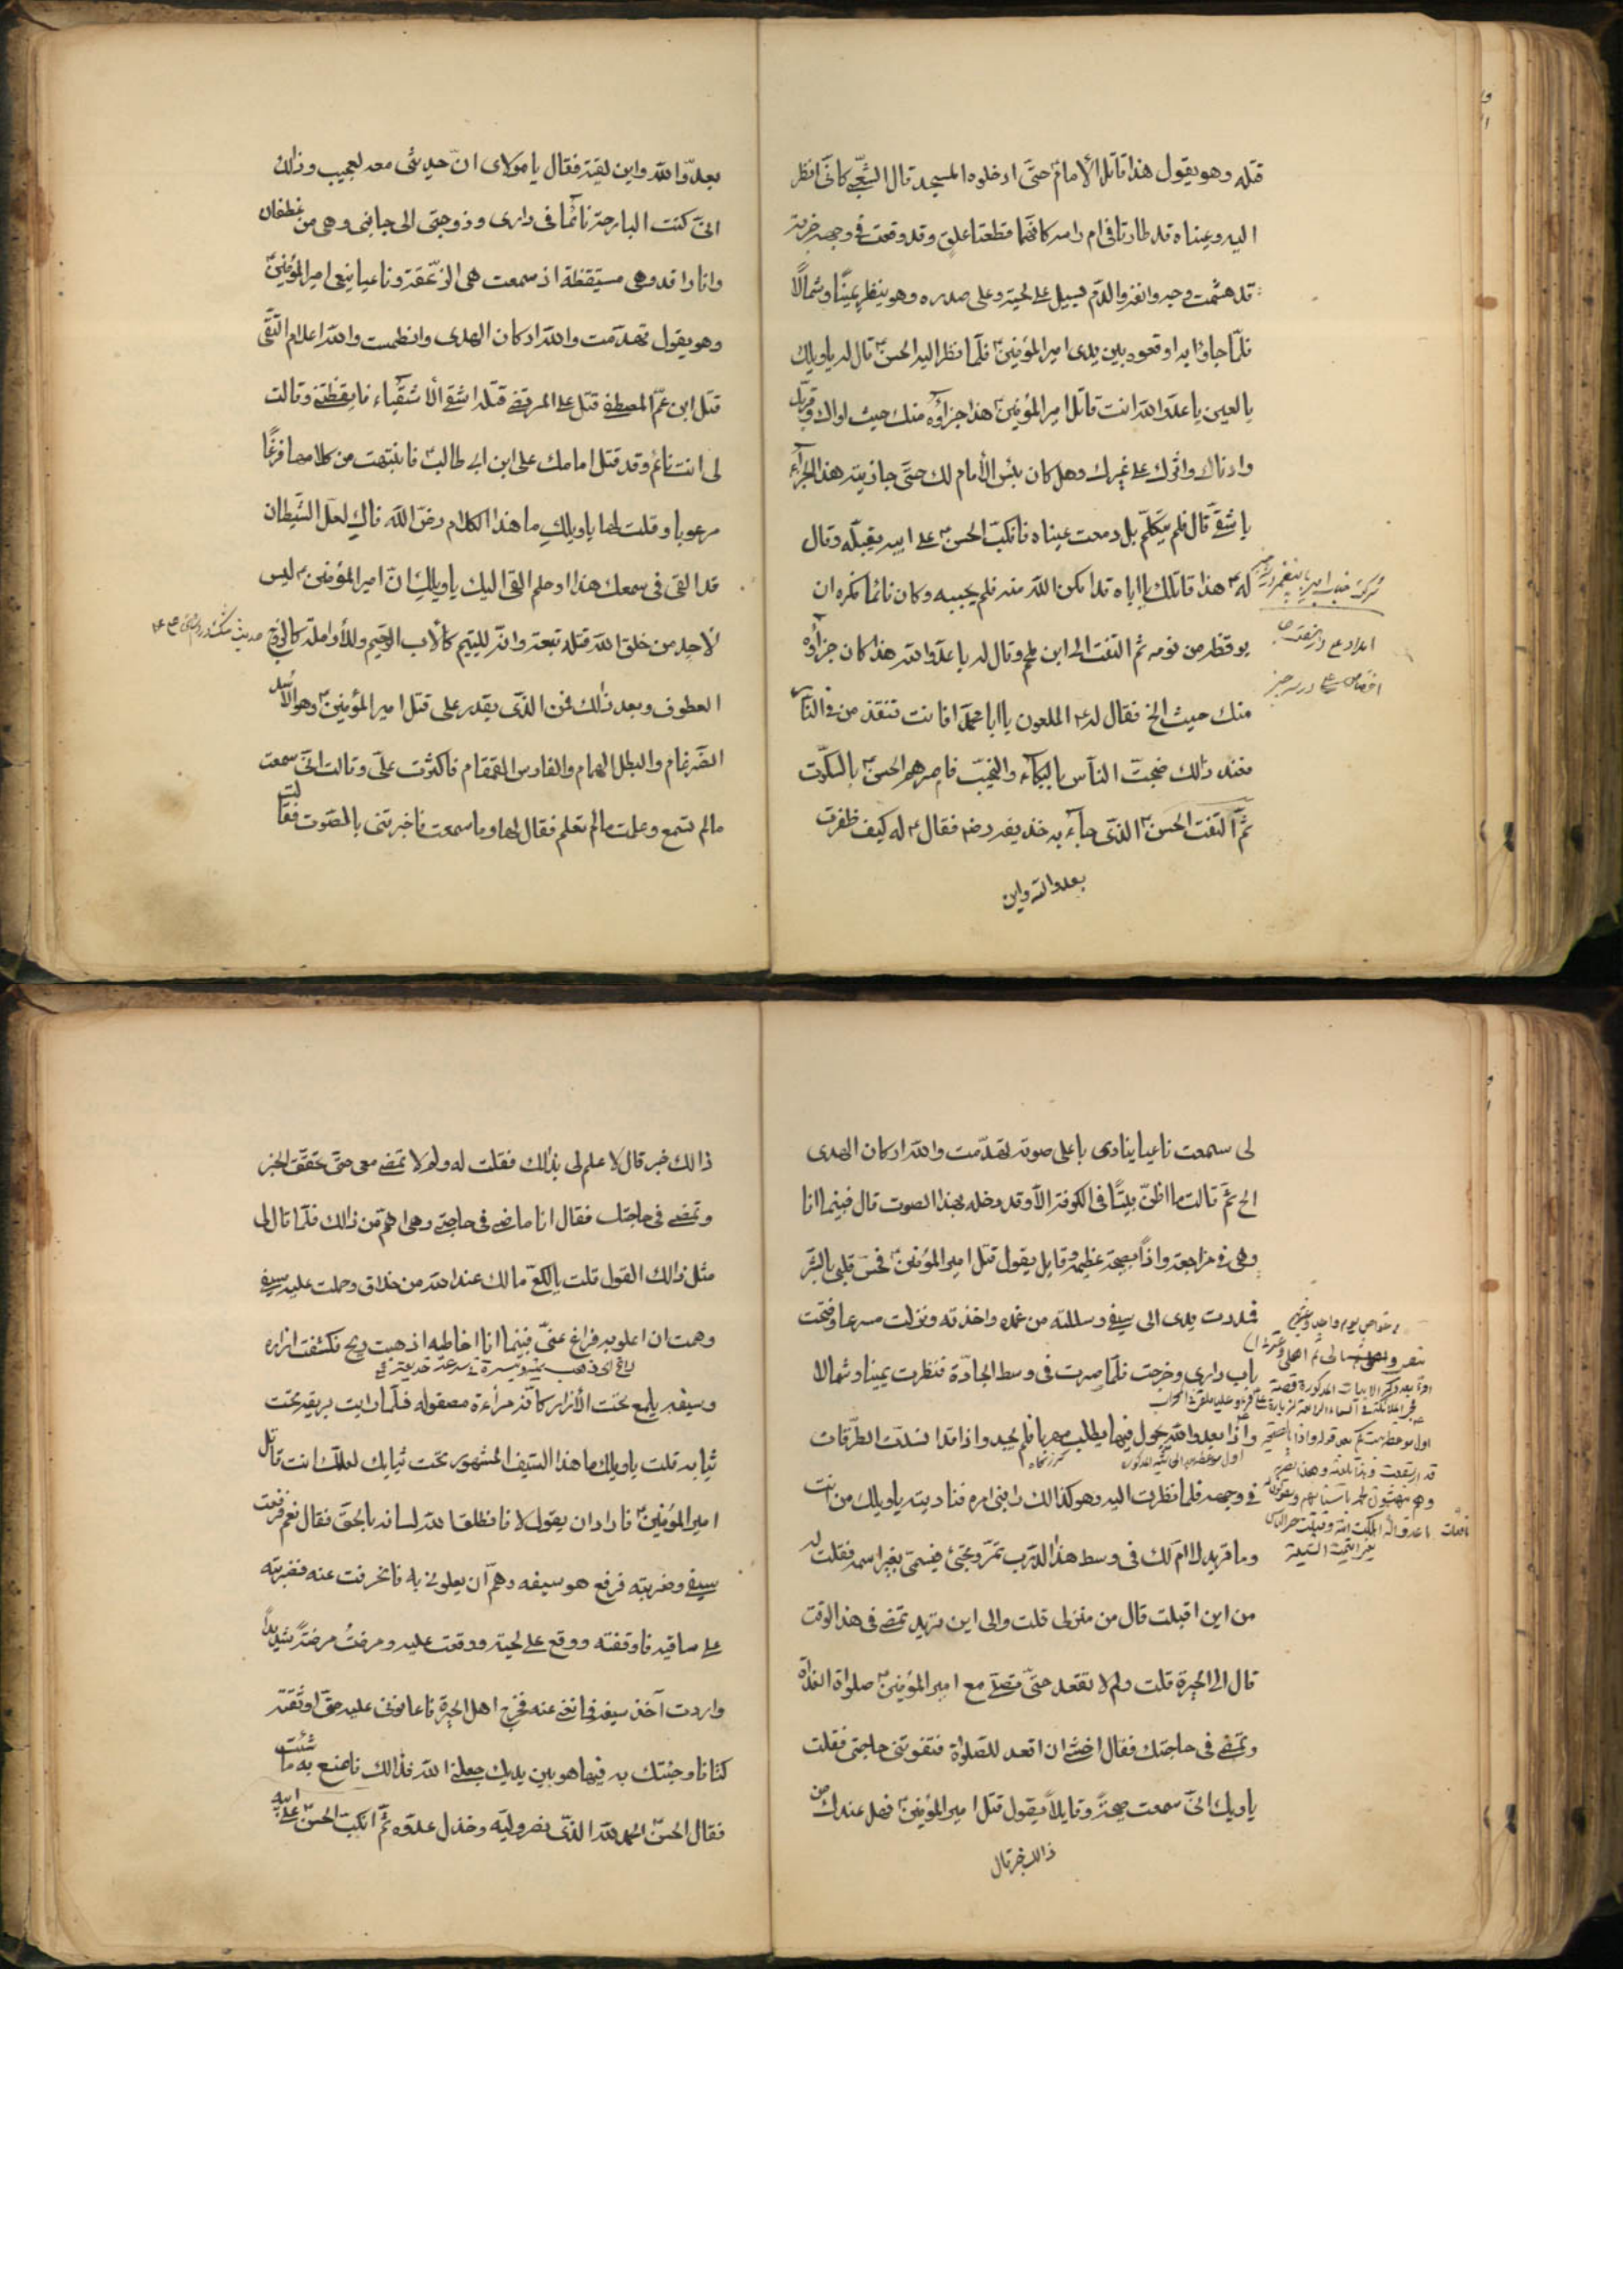 قتله وهو يقول هذا قاتل الأمام حتّى ادخلوه المسجد قال الشعبي كانّى انظر
اليه وعيناه قد طارتا فى ام راسه كانّهما قطعتا علق وقد وقعت فى وجهه ضربة
قد هشمت وجهه وانفه والدّم يسيل على لحيته وعلى صدره وهو ينظر يمينًا وشمالًا
فلمّا جاؤا به اوقعوه بين يدى امير المؤمنين فلمّا نظر اليه الحسن قال له ياويلك
يا لعين يا عدوّ الله انت قاتل امير المؤمنين هذا جزاؤه منك حيث اواك وقرّبك
وادناك واثرك على غيرك وهل كان بئس الأمام لك حتّى جازيته هذا الجزاء
يا شقىّ قال فلم يتكلّم بل دمعت عيناه فانكبّ الحسن على ابيه يقبّله وقال
له هذا قاتلك يا اباه قد امكن الله منه فلم يجيبه وكان نائما فكره ان
يوقظه من نومه ثم التفت الى ابن ملجم وقال له يا عدوّ الله هذا كان جزاؤه
منك حيث الخ فقال له الملعون يا ابا محمّد افانت تنقذ من فى النّار
فعند ذالك ضجّت النّاس بالبكاء والنّحيب فامرهم الحسن بالسّكوت
ثمّ التفت الحسن الذّى جاء به حذيفه رض فقال له كيف ظفرت
بعدو الله واين
بعدّو الله واين لقيته فقال يا مولاى انّ حديثى معه لعجيب وذالك
انّى كنت البارحة نائما فى دارى وزوجتى الى جانبى وهى من غطفان
وانا راقد وهى مستيقظة اذ سمعت هى الزّعقة وناعيا ينعى امير المؤمنين
وهو يقول تهدّمت والله اركان الهدى وانطمست والله اعلام التّقى
قتل ابن عمّ المصطفى قتل على المرتضى قتله اشقى الأشقياء فايقظتنى وقالت
لى انت نائم وقد قتل امامك على ابن ابى طالب فانتبهت من كلامها فزعًا
مرعوبا وقلت لها ياويلك ما هذا الكلام رضّ الله فاك لعلّ الشّيطان
قد القى فى سمعك هذا او حلم القى اليك ياويلك انّ امير المؤمنين ليس
لأحد من خلق الله قبله تبعة وانّه لليتيم كالأب الرّحيم وللأرملة كالزّوج
العطوف وبعد ذالك فمن الذّى يقدر على قتل امير المؤمنين وهو الأسد
الضّرغام والبطل الهمام والفارس القمقام فاكثرت علىّ وقالت انّى سمعت
مالم تسمع وعلمت مالم تعلم فقال لها وما سمعت فاخبرتنى بالصّوت فقالت
لى سمعت ناعيا ينادى باعلى صوته تهدّمت والله اركان الهدى
الخ ثمّ قالت ما اظنّ بيتًا فى الكوفة الّا وقد دخله هذا الصوت قال فبينما انا
وهى فى مراجعة واذًا بصيحة عظيمة وقايل يقول قتل امير المؤمنين فحسّ قلبى بالشّر
فمددت يدى الى سيفى وسللته من غمده واخذته ونزلت مسرعا وفتحت
باب دارى وخرجت فلمّا صرت فى وسط الجادّة فنظرت يمينا وشمالا
واذا بعدو الله يجول فيها يطلب مهربا فلم يجد واذا قد انسدّت الطّرقات
فى وجهه فلما نظرت اليه وهو كذالك رابنى امره فناديته ياويلك من انت
وما تريد لا امّ لك فى وسط هذا الدّرب تمرّ وتجئ فتسمّى بغير اسمه فقلت له
من اين اقبلت قال من منزلى قلت والى اين تريد تمضى فى هذا الوقت
قال الى الحيرة قلت ولم لا تقعد حتّى تصلّى مع امير المؤمنين صلواة الغداة
وتمضى فى حاجتك فقال اخشى ان اقعد للصّلواة فتفوتنى حاجتى فقلت
ياويلك انّى سمعت صيحةً وقايلًا يقول قتل امير المؤمنين فهل عندك من
ذالك خبر قال
ذالك خبر قال لا علم لى بذالك فقلت له ولم لا تمضى معى حتّى تحقّق الخبر
وتمضى فى حاجتك فقال انا ماضى فى حاجتى وهى اهمّ من ذالك فلمّا قال لى
مثل ذالك القول قلت يا لكع ما لك عند الله من خلاق وحملت عليه بسيفى
وهمت ان اعلو به فراغ عنّى فبينما انا اخاطبه اذ هبت ريح فكشفت ازاره
وسيفه يلمع تحت الأزار كانّه مراءة مصقوله فلمّا رايت بريقه تحت
ثيابه قلت ياويلك ما هذا السّيف المشهور تحت ثيابك لعلّك انت قاتل
امير المؤمنين فاراد ان يقول لا فانطق الله لسانه بالحقّ فقال نعم فرفعت
سيفى وضربته فرفع هو سيفه وهمّ ان يعلونى به فانحرفت عنه فضربته
على ساقيه فاوقفته ووقع على لحيته ووقعت عليه وصرخت صرخةً شديداً
واردت آخذ سيفه فمانعنى عنه فخرج اهل الحيرة فاعانونى عليه حتّى اوثقته
كتافا وجئتك به فها هو بين يديك جعلنى الله فداك فاصنع به ما شئت
فقال الحسن الحمد لله الذّى نصر وليّه وخذل عدوّه ثمّ انكبّ الحسن على ابيه